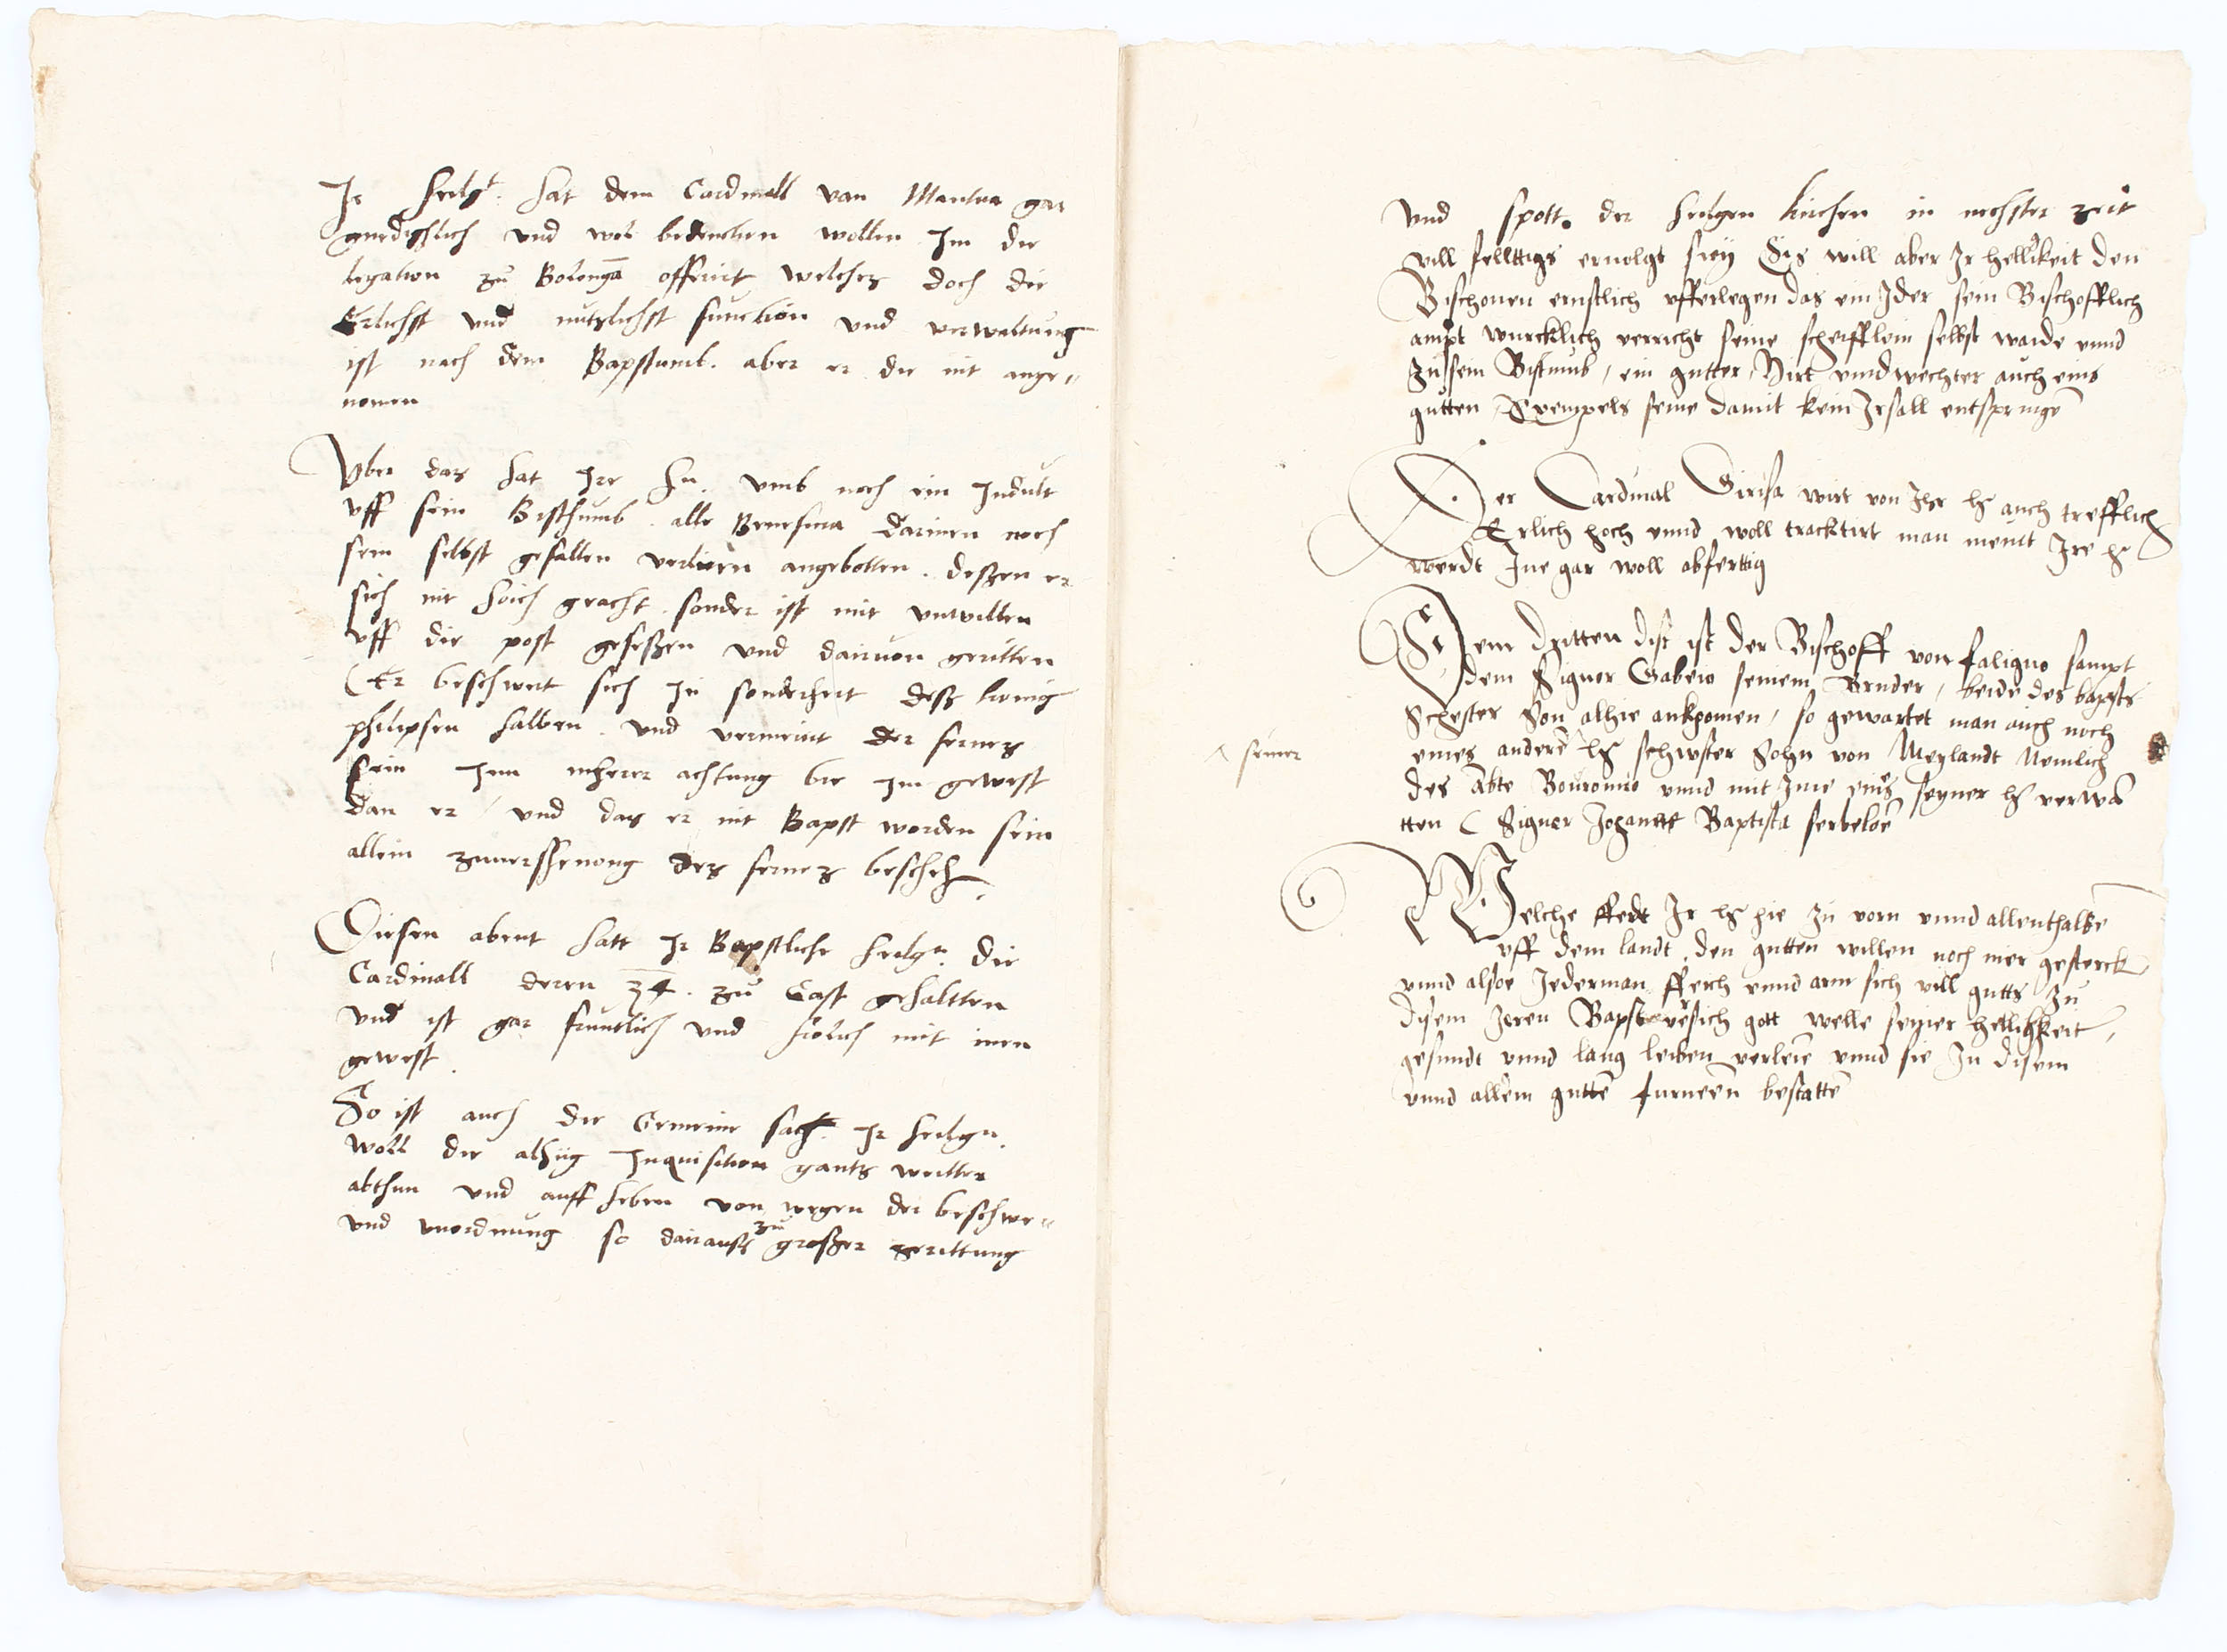 Ir heilgt. hat dem Cardinall van Mantua gar
gnediglich vnd wol bedencken wollen Im die
legation zu Bolonga offerirt welches doch die
Erlichst vnd nutzlichst function vnd verwaltung
ist nach dem Bapstumb. aber er die nit ange„
nomen
Vber das hat Ire hn. vmb noch ein Indult
vff sein Bisthumb. alle Beneficia darinen noch
sein selbst gefallen verliern angebotten. deßen er
sich nit hoich geacht. sonder ist mit vnwillen
vff die post geseßen vnd dairuon geritten
(Er beschwert sich In sonderheit deß konig
philipsen halben. vnd vermeint der fernes
sein Inn mherer achtung bie im gewest
dan er / vnd das er nit Bapst worden sein
allein zuuersehenong des fernes bescheh.
Diesen abent hatt Ir Bapstliche heilgn. die
Cardinall deren 34. zu Gast gehaltten
vnd ist gar fruntlich vnd frolich mit inen
gewest.
So ist auch die Gemeine sach. Ir heilgn.
woll die alhiig Inquisition gants weitter
abthun vnd auff heben von wegen der beschwe„
vnd vnordnung so dairauß zu großer zerittung
vnd spott. der heilgen kirchen in nechster zeit
vill felltigs eruolgt seiy Eis will aber Ir hellikeit den
Bischouen ernstlich vfferlegen das ein Jder sein Bischofflich
ampt wurcklich verricht seine scheifflein selbst warde vnnd
zu sein Bistumb / ein gutter / Hirt vnnd wechter auch eins
gutten Exempels seine damit kein Irsall entspringe
Der Cardinal wirt von Ihr hs auch trefflich
Erlich hoch vnnd woll tracktirt man meint Ire hs
werdt Ine gar woll abfertig
dem dritten dist ist der Bischoff von faligno sampt
dem Signor Gabrio seinem Bruder / beide des bapsts
Schester Son alhie ankhomen / so gewartet man auch noch
^ seiner
eines andere hs schwster Sohn von Meylandt Nemlich
des abte Bouromio vnnd mit Ime eins seyner hs verwa
tten ( Signor Johannes Baptista serbeloe
Welche Ir hs hie zu vorn vnnd allenthalbe
vff dem landt. den gutten willen noch mer gesterck
vnnd alsoe Jederman Reich vnnd arm sich vill gutts zu
disem Jeren Bapst versich gott welle seyner hellichkeit /
gesundt vnnd lang leiben verleie vnnd sie In disem
vnnd allem gutte furneen bestatte